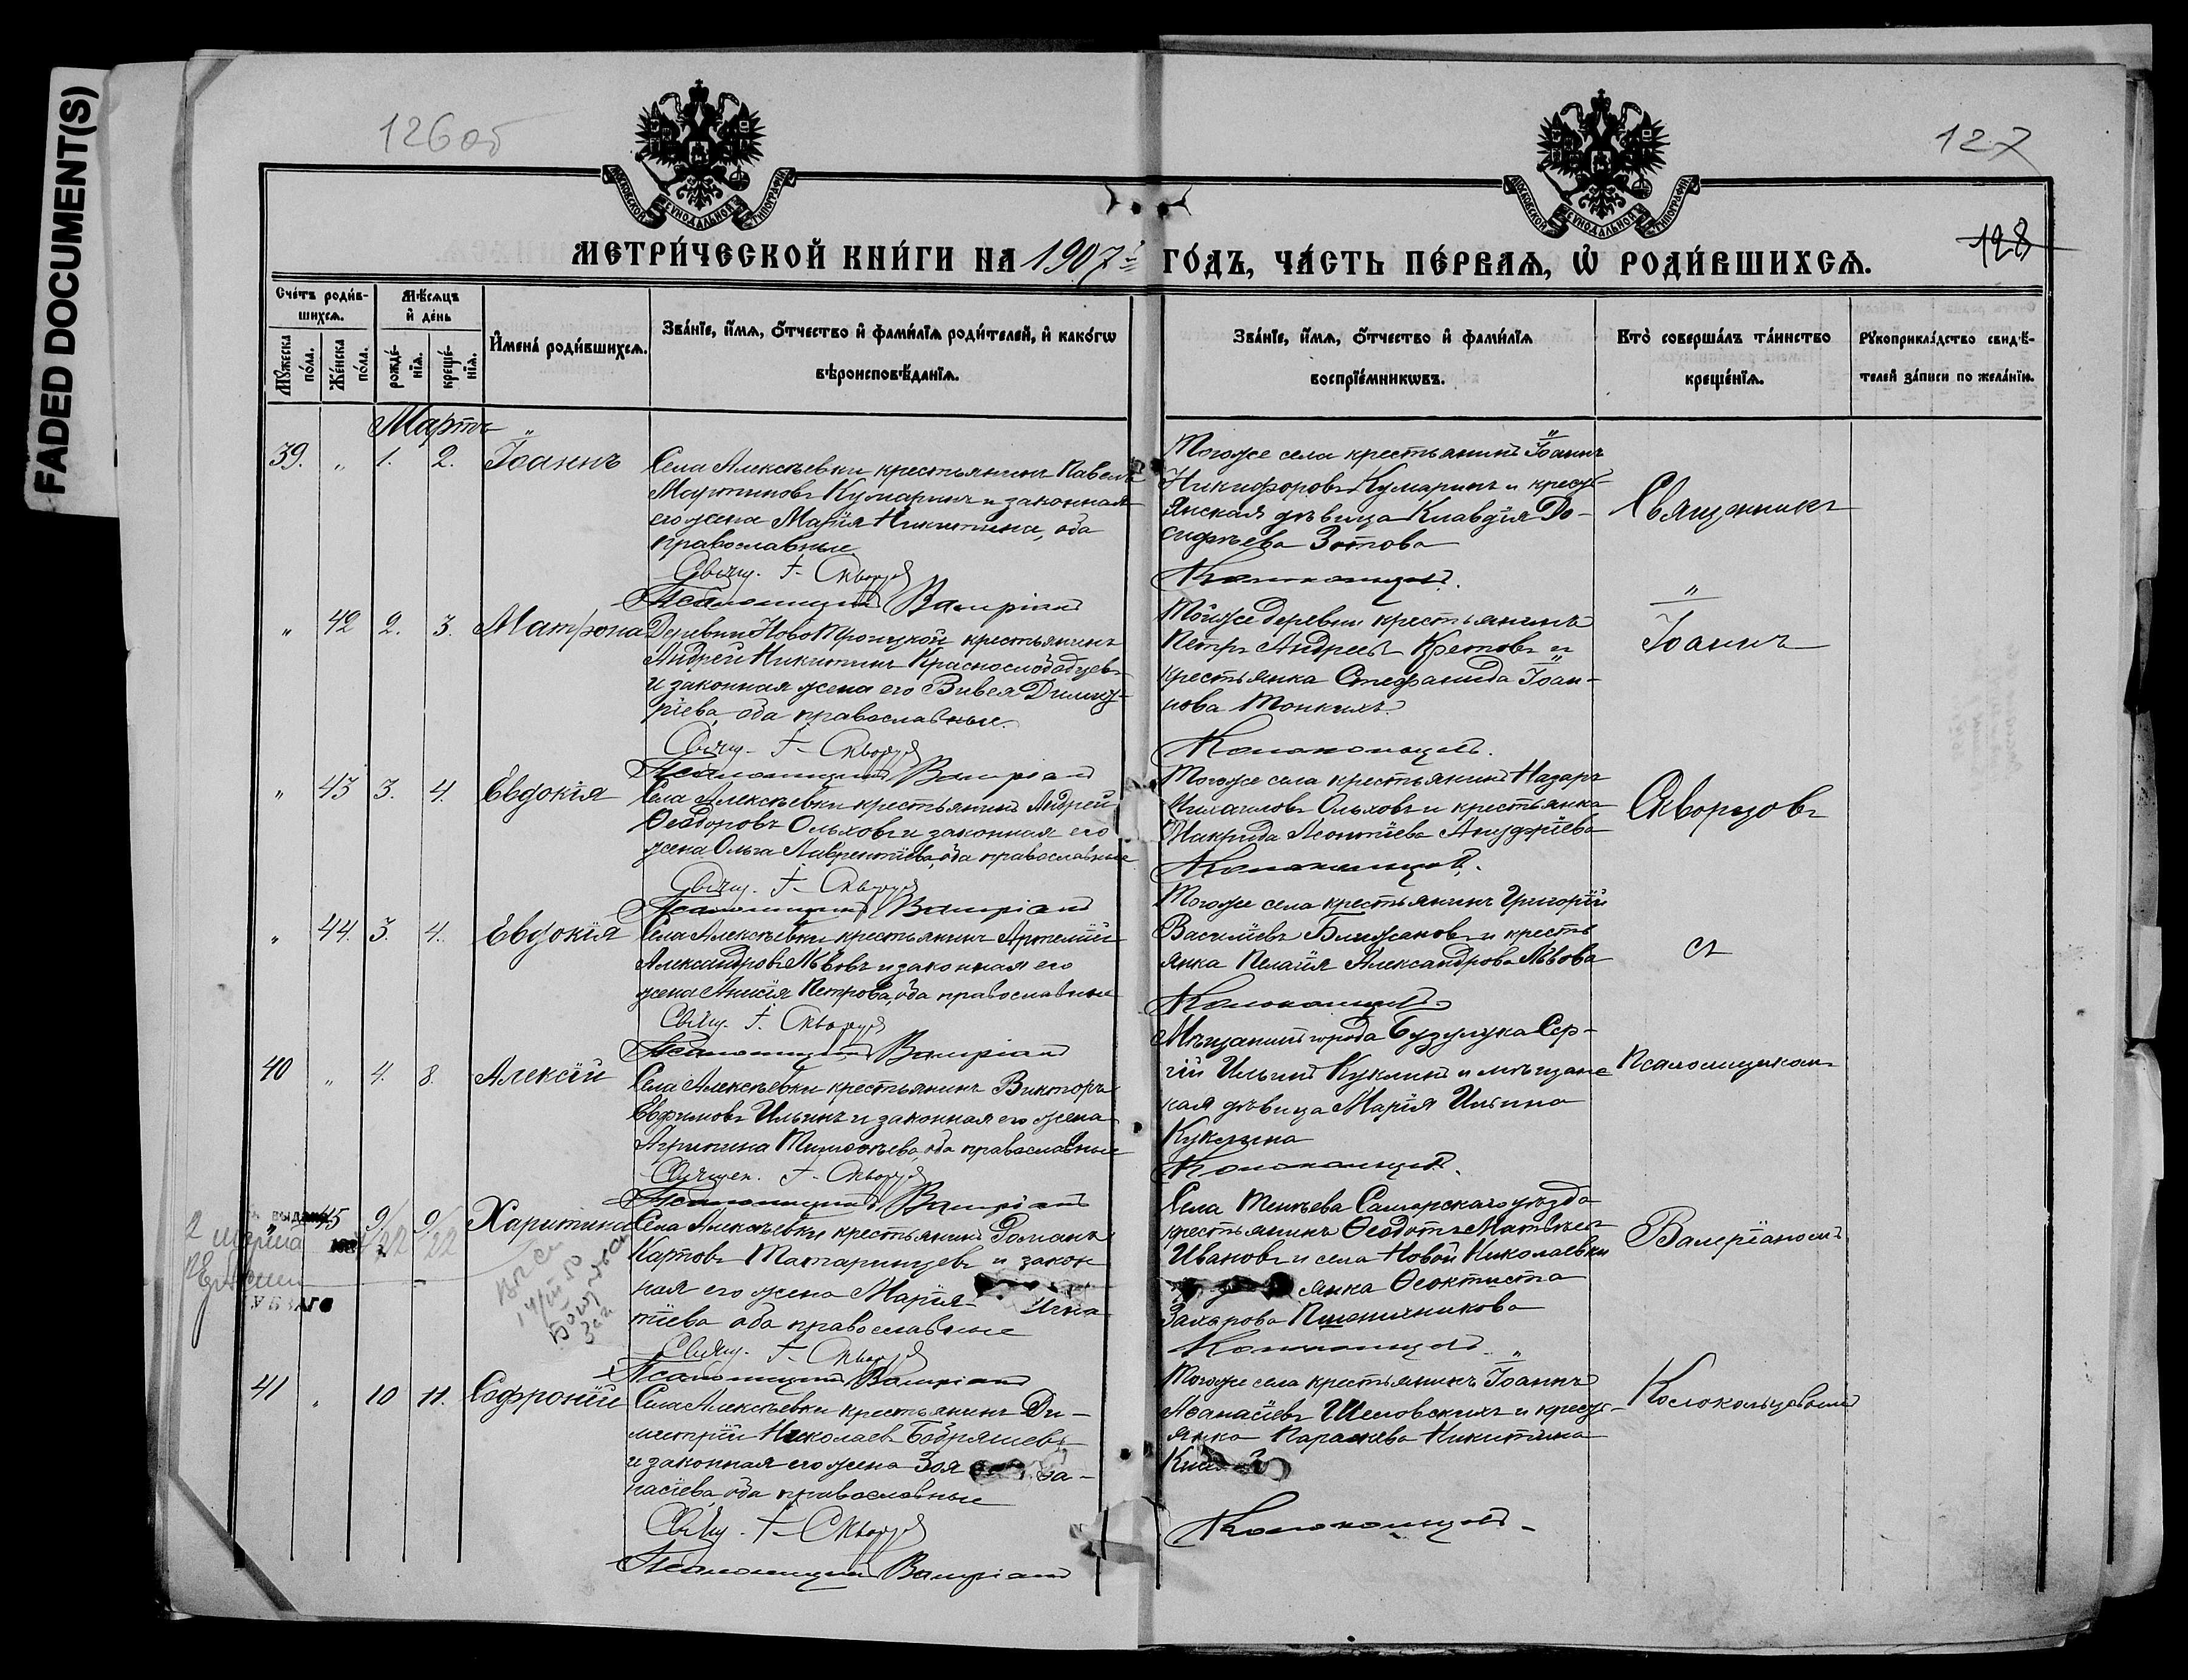 FADED DOCUMENT(S)
126об
127
128
МОСКОВСКОЙ СѴНОДАЛЬНОЙ ТИПОГРАФІИ
МОСКОВСКОЙ СѴНОДАЛЬНОЙ ТИПОГРАФІИ
МЕТРИ́ЧЕСКОЙ КНИ́ГИ НА 1907 й ГО́ДЪ, ЧА́СТЬ ПЕ́РВАѦ, Ѡ҆ РОДИ́ВШИХСѦ.
Сче́тъ роди́в-
шихсѧ.
Мѣ́сѧцъ
и҆ де́нь
Мꙋ́жеска
по́ла.
Же́нска
по́ла.
рожде́-
нїѧ.
креще́-
нїѧ.
И҆мена̀ роди́вшихсѧ.
Зва́нїе, и҆́мѧ, ѻ҆́тчество и҆ фами́лїѧ роди́телей, и҆ како́гѡ
вѣроисповѣ́данїѧ.
Зва́нїе, и҆́мѧ, ѻ҆́тчество и҆ фами́лїѧ
воспрїе́мникѡвъ.
Кто̀ соверша́лъ та́инство
креще́нїѧ.
Рꙋкоприкла́дство свидѣ́-
телей за́писи по жела́нїю.
Мартъ
39. " 1. 2. Іоаннъ
Села Алексѣевки крестьянинъ Павелъ
Мартиновъ Кумаринъ и законная
его жена Марія Никитина, оба
православные
Свящ. І. Скворцовъ
Псаломщикъ Валеріанъ
Тогоже села крестьянинъ Іоаннъ
Никифоровъ Кумаринъ и кресть-
янская дѣвица Клавдія До-
сифѣева Зотова
Колокольцевъ.
Священникъ
" 42 2. 3. Матрона
Деревни НовоТроицкой крестьянинъ
Андрей Никитинъ Краснослободцевъ
и законная жена его Вивея Димит-
ріева, оба православные.
Свящ. І. Скворцовъ
Псаломщикъ Валеріанъ
Тойже деревни крестьянинъ
Петръ Андреевъ Кретовъ и
крестьянка Стефанида Іоан-
нова Тонкихъ.
Колокольцевъ.
Іоаннъ
" 43 3. 4. Евдокія
Села Алексѣевки крестьянинъ Андрей
Ѳеодоровъ Ольховъ и законная его
жена Ольга Лаврентіева, оба православные
Свящ. І. Скворцовъ
Псаломщикъ Валеріанъ
Тогоже села крестьянинъ Назаръ
Михаиловъ Ольховъ и крестьянка
Макрида Леонтіева Ануфріева
Колокольцевъ.
Скворцовъ
" 44. 3. 4. Евдокія
Села Алексѣевки крестьянинъ Артемій
Александровъ Львовъ и законная его
жена Анисія Петрова, оба православные
Свящ. І. Скворцовъ
Псаломщикъ Валеріанъ
Тогоже села крестьянинъ Григорій
Василіевъ Ближановъ и кресть
янка Пелагія Александрова Львова
Колокольцевъ
съ
40 " 4. 8. Алексій
Села Алексѣевки крестьянинъ Викторъ
Евфимовъ Ильинъ и законная его жена
Агрипина Тимоѳѣева, оба православные
Священ. І. Скворцовъ
Псаломщикъ Валеріанъ
Мѣщанинъ города Бузулука Сер-
гій Ильинъ Куклинъ и мѣщанс
кая дѣвица Марія Ильина
Куклина
Колокольцевъ.
Псаломщикомъ
45 9/22 9/22 Харитина
Села Алексѣевки крестьянинъ Романъ
Карповъ Татаринцевъ и закон
ная его жена Марія Игна-
тіева оба православные
Свящ. І. Скворцовъ
Псаломщикъ Валеріанъ
Села Тенѣева Самарскаго уѣзда
крестьянинъ Ѳеодотъ Матвѣевъ
Ивановъ и села Новой Николаевки
янка Ѳеоктиста
Захарова Пшеничникова
Колокольцевъ.
Валеріаномъ
41 " 10 11. Софроній
Села Алексѣевки крестьянинъ Ди-
митрій Николаевъ Бобряшевъ
и законная его жена Зоя
насіева, оба православные
Свящ. І. Скворцовъ
Псаломщикъ Валеріанъ
Тогоже села крестьянинъ Іоаннъ
Аѳанасіевъ Шеловскихъ и кресть-
янка Параскева Никитина
Колокольцевъ.
Колокольцовымъ